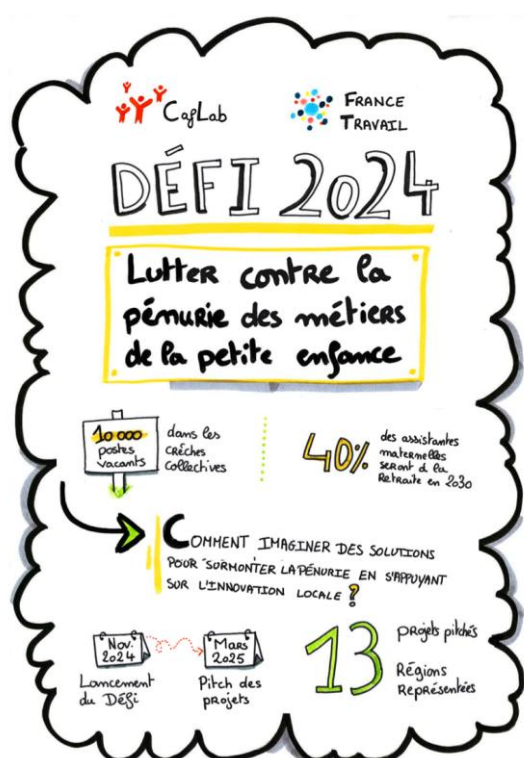 CafLab
FRANCE
TRAVAIL
DÉFI 2024
Lutter contre la
pénurie des métiers
de la petite enfance
10 000
postes
vacants
dans les
crèches
collectives
40%
des assistantes
maternelles
seront à la
Retraite en 2030
COMMENT IMAGINER DES SOLUTIONS
POUR SURMONTER LA PÉNURIE EN S'APPUYANT
SUR L'INNOVATION LOCALE ?
Nov.
2024
Lancement
du Défi
Mars
2025
Pitch des
projets
13
projets pitchés
Régions
Représentées